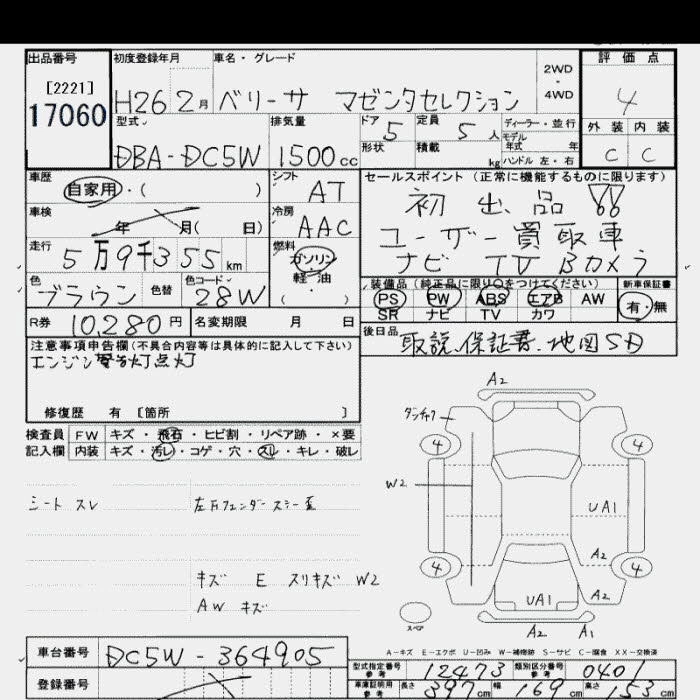 出品番号 初度登録年月 車名・グレード 2WD・4WD 評価点
[2221]
17060
H26 2月 ベリーサ マゼンタセレクション 4
型式 排気量 ドア 5 定員 5人 ディーラー・並行 外装 内装
モデル年式 年
形状 積載 kg ハンドル 左・右
DBA-DC5W 1500cc C C
車歴 シフト セールスポイント (正常に機能するものに限ります)
自家用・( ) AT 初出品!!
車検 年 月( 日) 冷房 AAC ユーザー買取車
走行 5万9千355km 燃料 ガソリン 軽・油 ( ) ナビ TV Bカメラ
色 ブラウン 色替 色コード 28W
装備品 (純正品に限り○をつけてください) 新車保証書
PS PW ABS エアB AW 有・無
SR ナビ TV カワ
R券 10,280円 名変期限 月 日
後日品 取説、保証書、地図SD
注意事項申告欄(不具合内容等は具体的に記入して下さい)
エンジン警告灯点灯
修復歴 有 [箇所 ]
検査員 FW キズ・飛石・ヒビ割・リペア跡・×要
記入欄 内装 キズ・汚レ・コゲ・穴・スレ・キレ・破レ
シート スレ
キズ E スリキズ W2
AW キズ
A2
4 4
W2
UA1
A2
4 4
UA1 A2
スペア
A2 A1
A-キズ E-エクボ U-凹み W-補修跡 S-サビ C-腐食 XX-交換済
車台番号 DC5W-364905
登録番号
型式指定番号 参考 12473 類別区分番号 参考 0401
車庫証明用 参考 長さ 397cm 幅 169cm 高さ 53cm